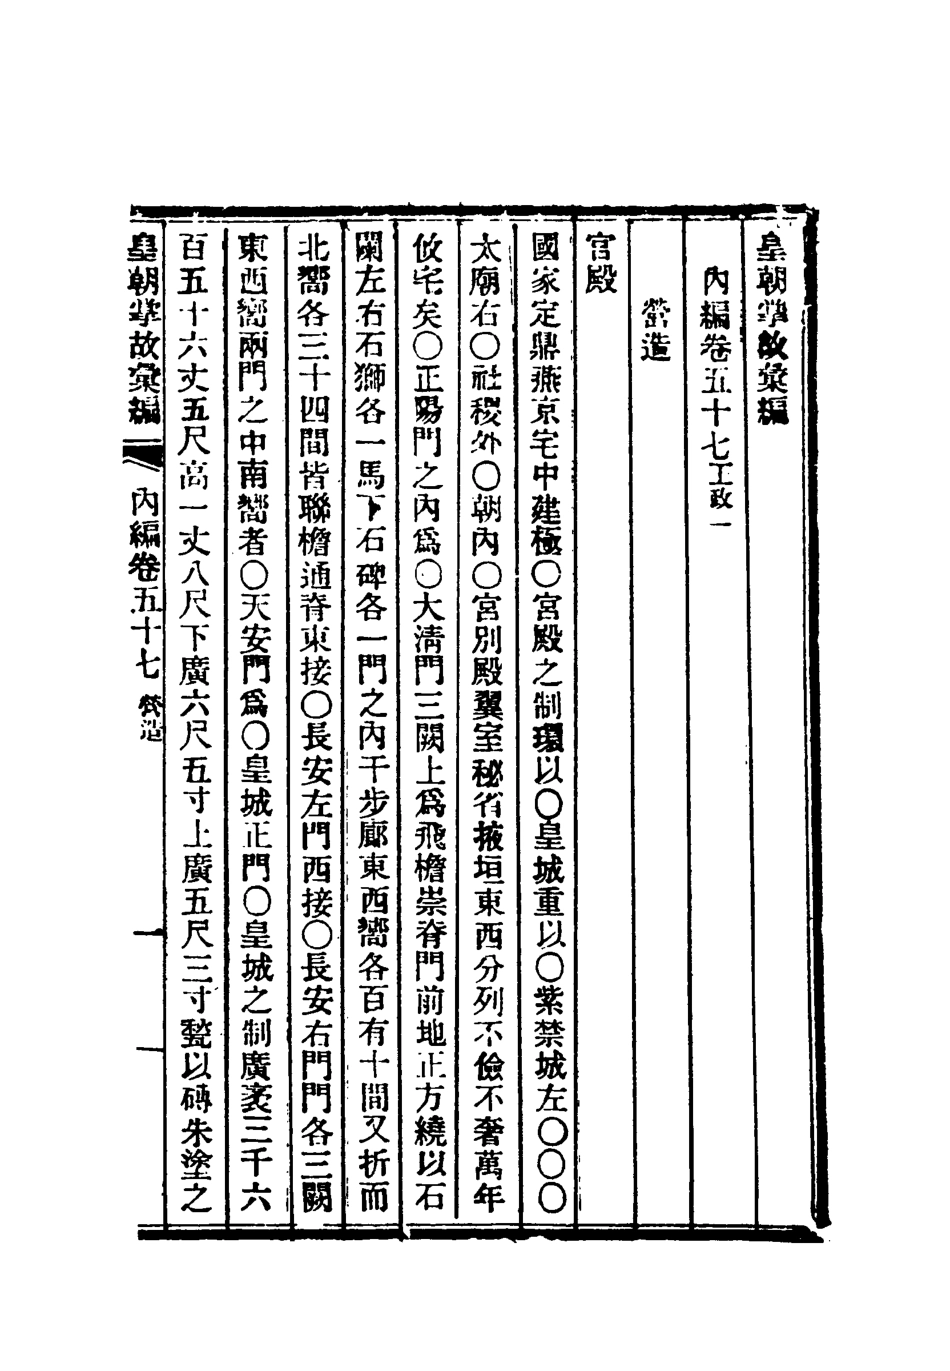 皇朝掌故彙編
內編卷五十七工政一
營造
宫殿
國家定鼎燕京宅中建極〇宮殿之制環以〇皇城重以〇紫禁城左〇〇〇
太廟右〇社稷外〇朝內〇宮別殿翼室秘省掖垣東西分列不儉不奢萬年
攸宅矣〇正陽門之內爲〇大清門三闕上爲飛檐崇脊門前地正方繞以石
闌左右石獅各一馬下石碑各一門之內千步廊東西嚮各百有十間又折而
北嚮各三十四間皆聯檐通脊東接〇長安左門西接〇長安右門門各三闕
東西嚮兩門之中南嚮者〇天安門爲〇皇城正門〇皇城之制廣袤三千六
百五十六丈五尺高一丈八尺下廣六尺五寸上廣五尺三寸甃以磚朱塗之
皇朝掌故彙編 內編卷五十七 營造 一